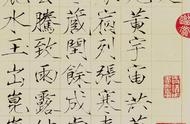 黃宇宙洪荒
宿列張寒來
藏閏餘成歲
騰致雨露
水玉出崑